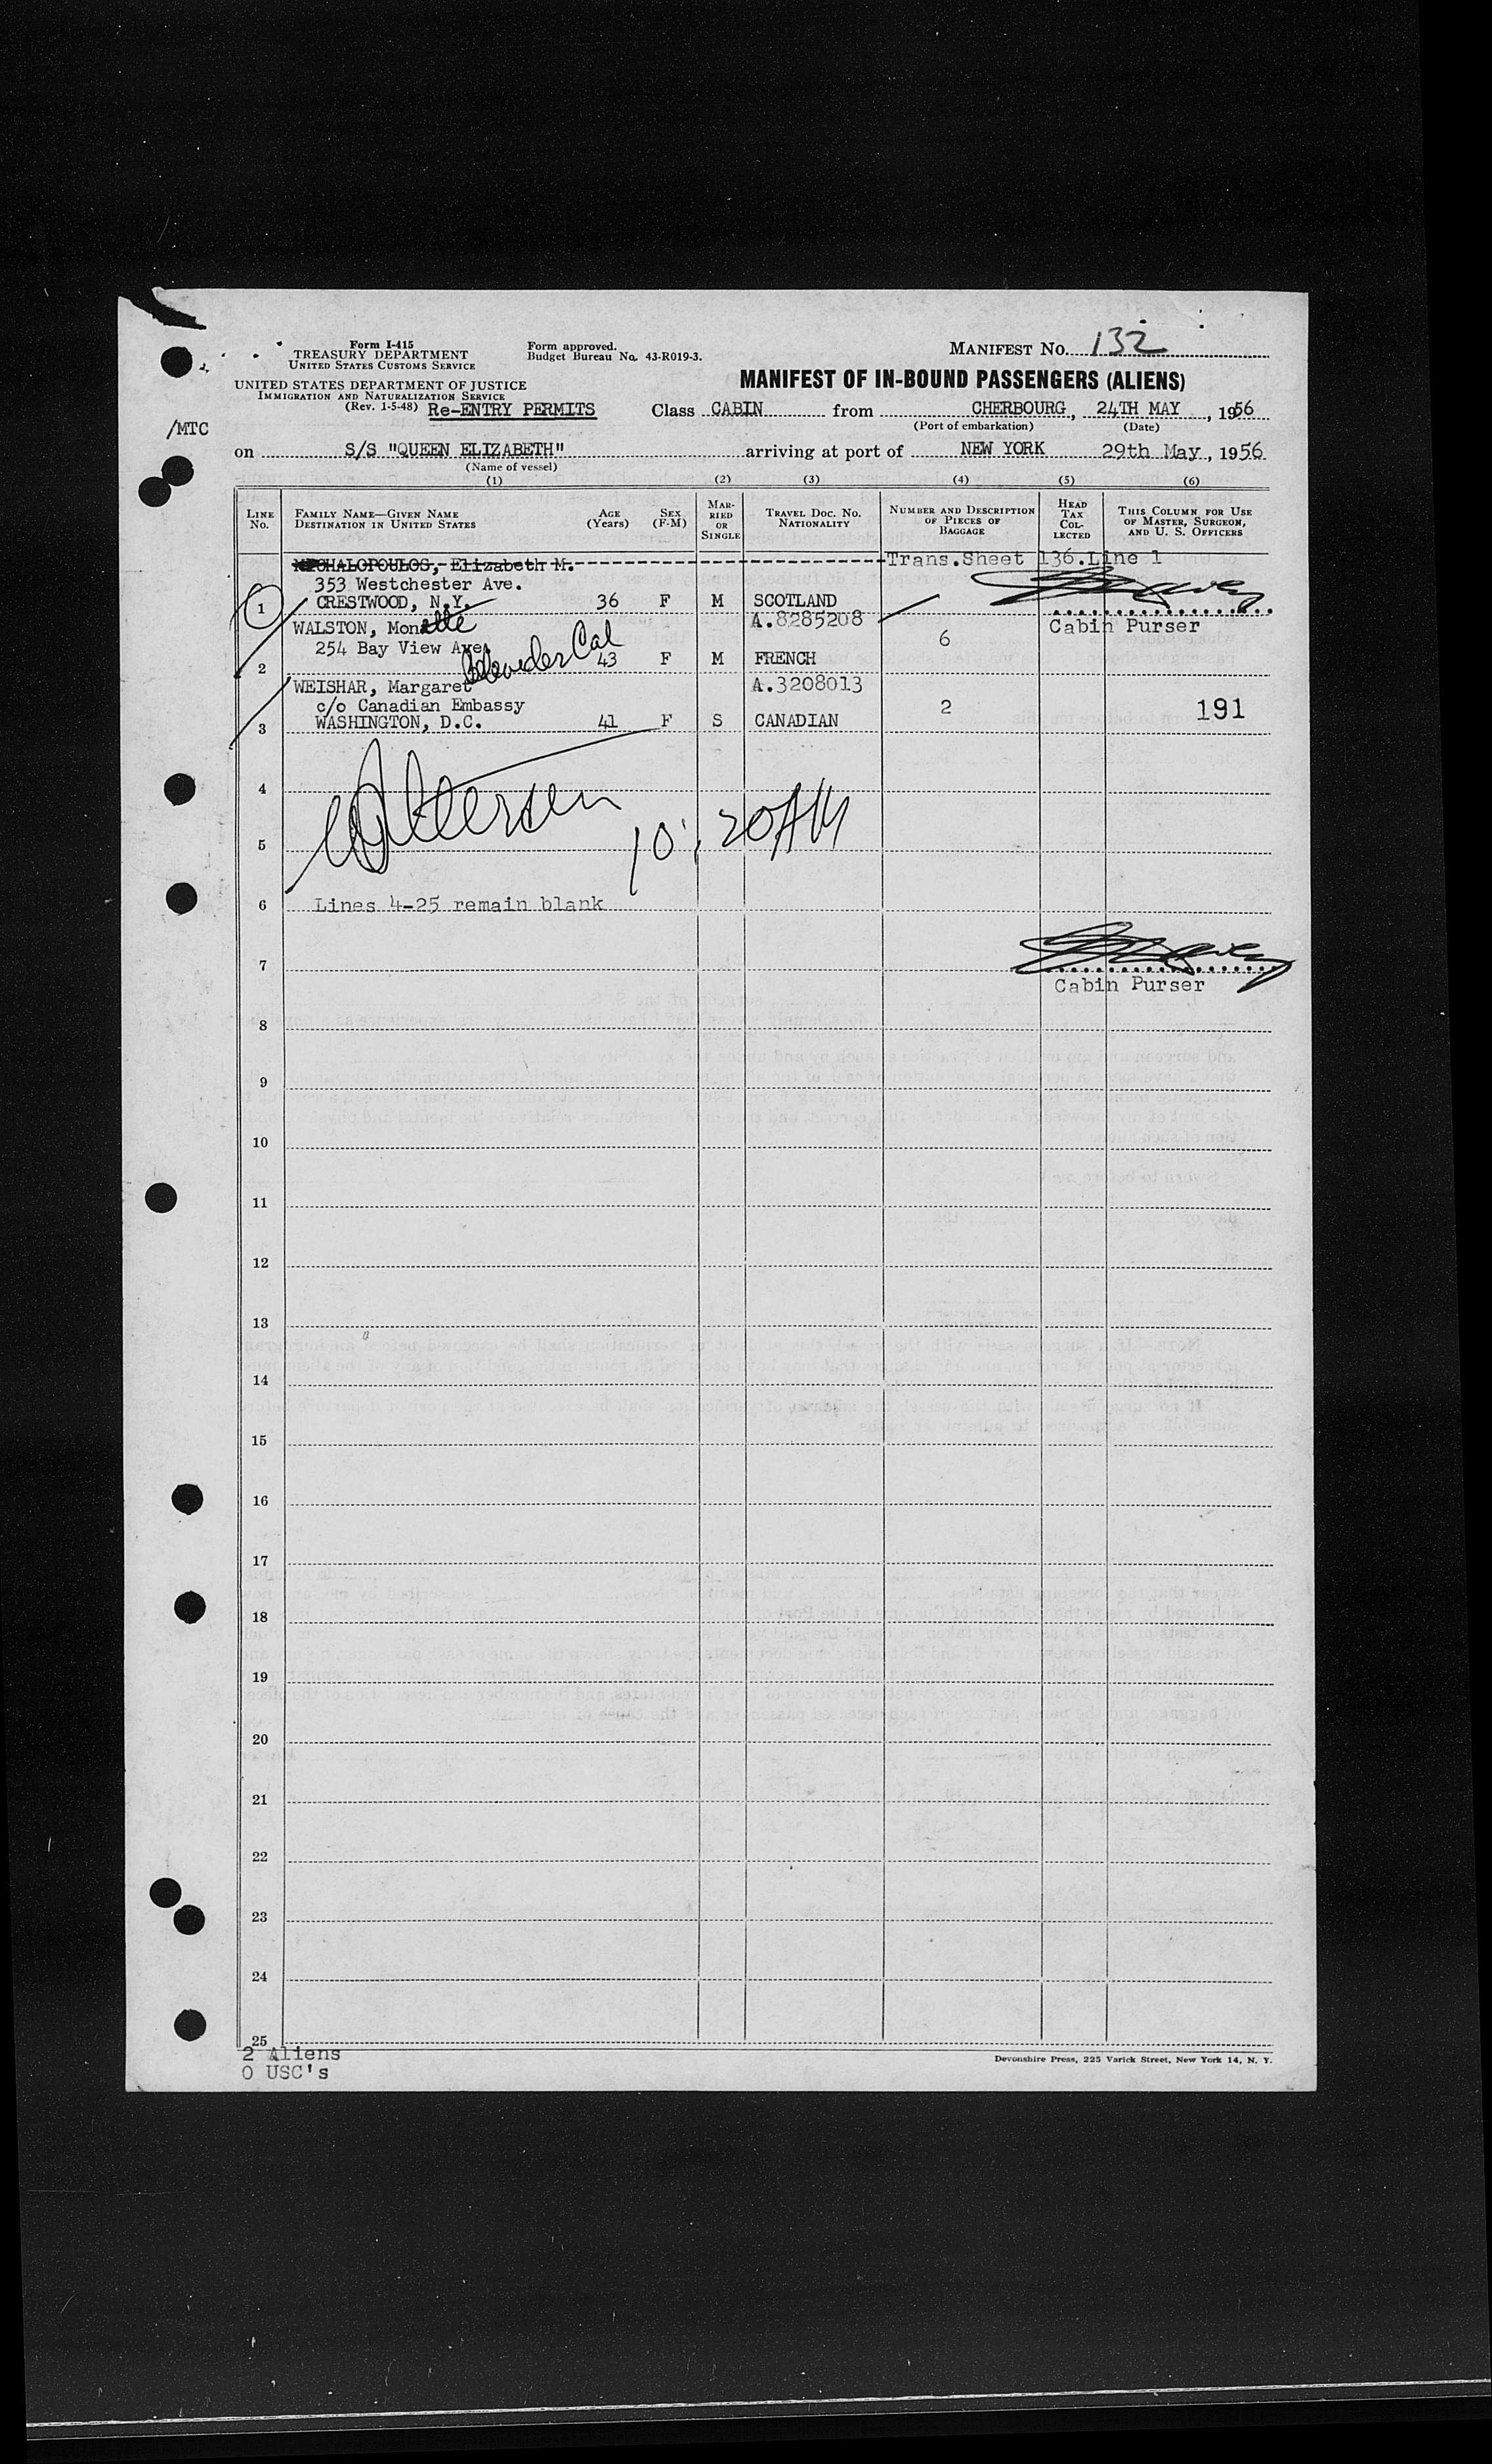 Form I-415
TREASURY DEPARTMENT
UNITED STATES CUSTOMS SERVICE
Form approved.
Budget Bureau No. 43-R019-3.
MANIFEST NO. 132
UNITED STATES DEPARTMENT OF JUSTICE
IMMIGRATION AND NATURALIZATION SERVICE
(Rev. 1-5-48) Re-ENTRY PERMITS
MANIFEST OF IN-BOUND PASSENGERS (ALIENS)
Class CABIN from CHERBOURG, 24TH MAY, 1956
(Port of embarkation) (Date)
/MTC
on S/S "QUEEN ELIZABETH" arriving at port of NEW YORK 29th May, 1956
(Name of vessel)
(1) (2) (3) (4) (5) (6)
LINE No. FAMILY NAME—GIVEN NAME DESTINATION IN UNITED STATES AGE (Years) SEX (F-M) MARRIED OR SINGLE TRAVEL DOC. NO. NATIONALITY NUMBER AND DESCRIPTION OF PIECES OF BAGGAGE HEAD TAX COLLECTED THIS COLUMN FOR USE OF MASTER, SURGEON, AND U. S. OFFICERS
MICHALOPOULOS, Elizabeth M. Trans.Sheet 136.Line 1
353 Westchester Ave.
1 CRESTWOOD, N.Y. 36 F M SCOTLAND
Cabin Purser
WALSTON, Monette A.8285208
254 Bay View Ave. 6
2 Belveder Cal 43 F M FRENCH
WEISHAR, Margaret A.3208013
c/o Canadian Embassy 2 191
3 WASHINGTON, D.C. 41 F S CANADIAN
4
5 10:20AM
6 Lines 4-25 remain blank
7
Cabin Purser
8
9
10
11
12
13
14
15
16
17
18
19
20
21
22
23
24
25
2 Aliens
0 USC's
Devonshire Press, 225 Varick Street, New York 14, N. Y.